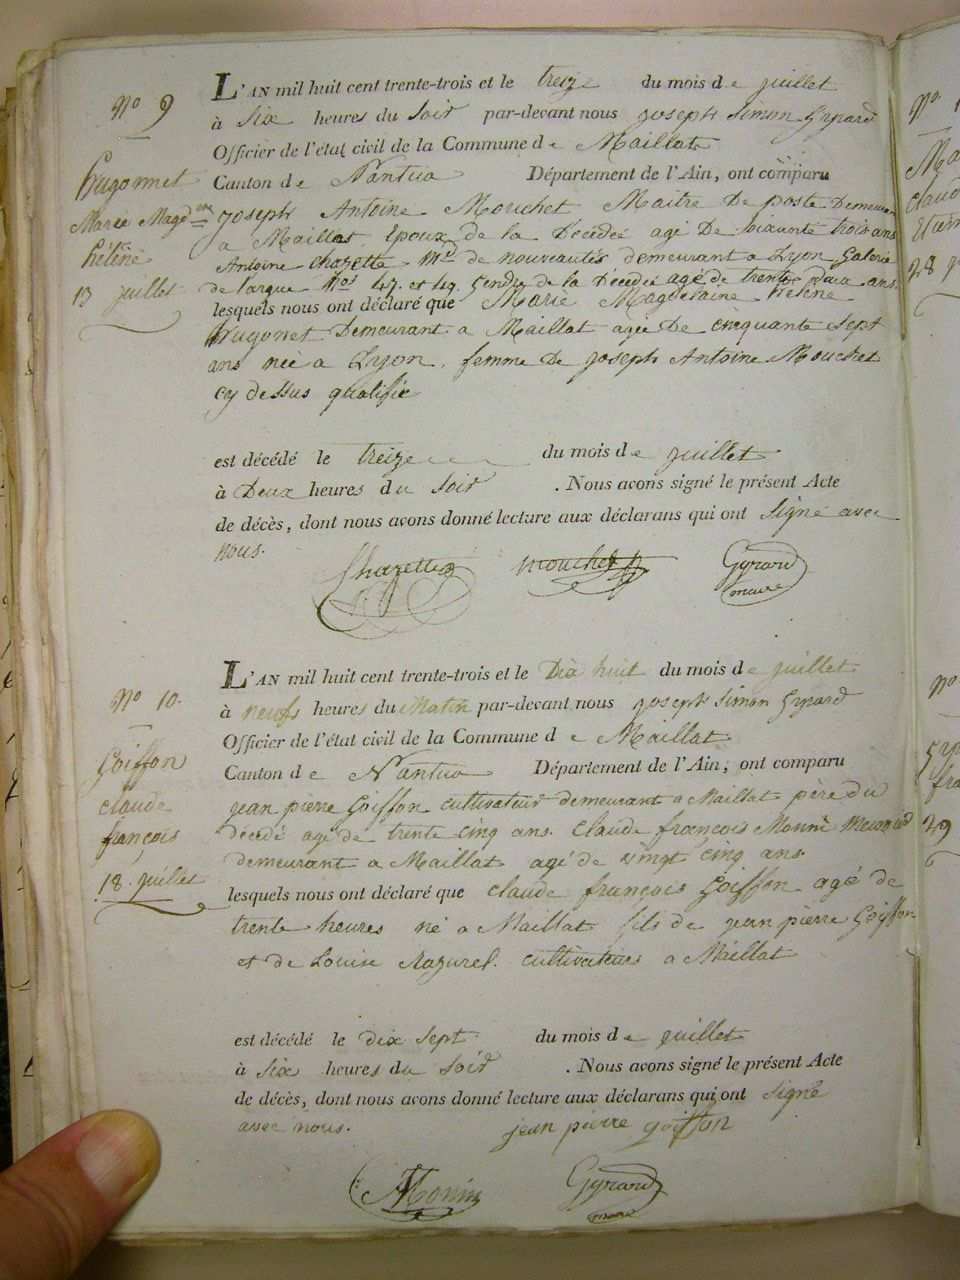 No 9
Hugonnet
Marie Magd.ne
hélène
13 juillet
L'AN mil huit cent trente-trois et le treize du mois de juillet
à six heures du soir par-devant nous joseph simon Gyrard
Officier de l'état civil de la Commune de Maillat
Canton de Nantua Département de l'Ain, ont comparu
joseph Antoine Mouchet Maitre De poste Demeurant
a Maillat Epoux de la Décédée agé De soixante trois ans
Antoine Chazette Md de nouveautés demeurant a Lyon Galerie
de l'argue Nos 49 et 49 Gendre de la Décédée agé de trente Deux ans
lesquels nous ont déclaré que Marie Magdelaine hélène
hugonet Demeurant a Maillat agée De cinquante sept
ans née a Lyon. femme De joseph Antoine Mouchet
cy dessus qualifié
est décédé le treize du mois de juillet
à Deux heures du soir . Nous avons signé le présent Acte
de décès, dont nous avons donné lecture aux déclarans qui ont signé avec
nous.
Chazette mouchet Gyrard
maire
No 10.
Goiffon
claude
françois
18. juillet
L'AN mil huit cent trente-trois et le Dix huit du mois de juillet
à neufs heures du Matin par-devant nous joseph simon Gyrard
Officier de l'état civil de la Commune de Maillat
Canton de Nantua Département de l'Ain, ont comparu
jean pierre Goiffon cultivateur demeurant a Maillat père du
décédé agé de trente cinq ans. Claude françois Monni Meunier
demeurant a Maillat agé de vingt cinq ans
lesquels nous ont déclaré que claude françois Goiffon agé de
trente heures né a Maillat fils de jean pierre Goiffon
et de Louise Razurel. cultivateurs a Maillat
est décédé le dix sept du mois de juillet
à six heures du soir . Nous avons signé le présent Acte
de décès, dont nous avons donné lecture aux déclarans qui ont signé
avec nous. jean pierre goiffon
Monin Gyrard
maire